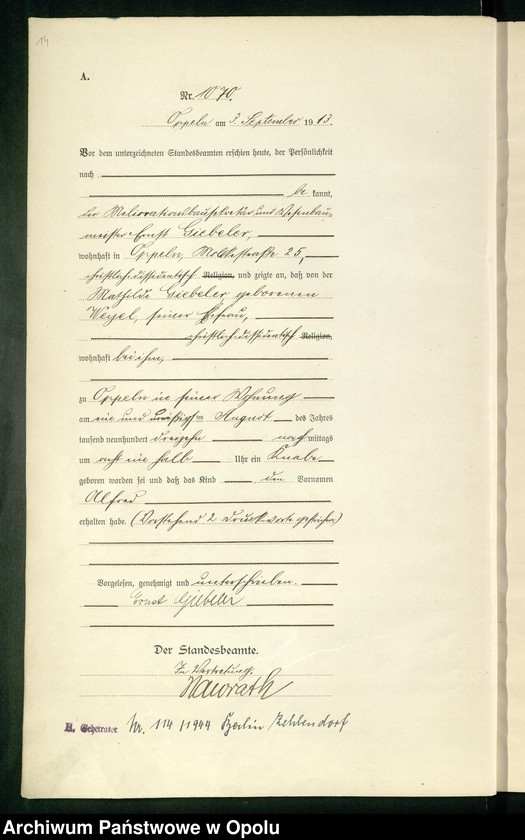 14
A.
Nr. 1070.
Oppeln am 3. September 1913.
Vor dem unterzeichneten Standesbeamten erschien heute, der Persönlichkeit
nach
be kannt,
der Meliorationsbausekretär und Wiesenbau-
meister Ernst Giebeler,
wohnhaft in Oppeln, Moltkestraße 25,
christlich-dissidentisch Religion, und zeigte an, daß von der
Mathilde Giebeler geborenen
Weyel, seiner Ehefrau,
christlich-dissidentisch Religion,
wohnhaft bei ihm,
zu Oppeln in seiner Wohnung
am ein und dreißigsten August des Jahres
tausend neunhundert dreizehn nachmittags
um acht ein halb Uhr ein Knabe
geboren worden sei und daß das Kind den Vornamen
Alfred
erhalten habe. (Vorstehend 2 Druckworte gestrichen)
Vorgelesen, genehmigt und unterschrieben.
Ernst Giebeler
Der Standesbeamte.
In Vertretung.
Nawrath
Nr. 114/1944 Berlin Zehlendorf
Archiwum Państwowe w Opolu